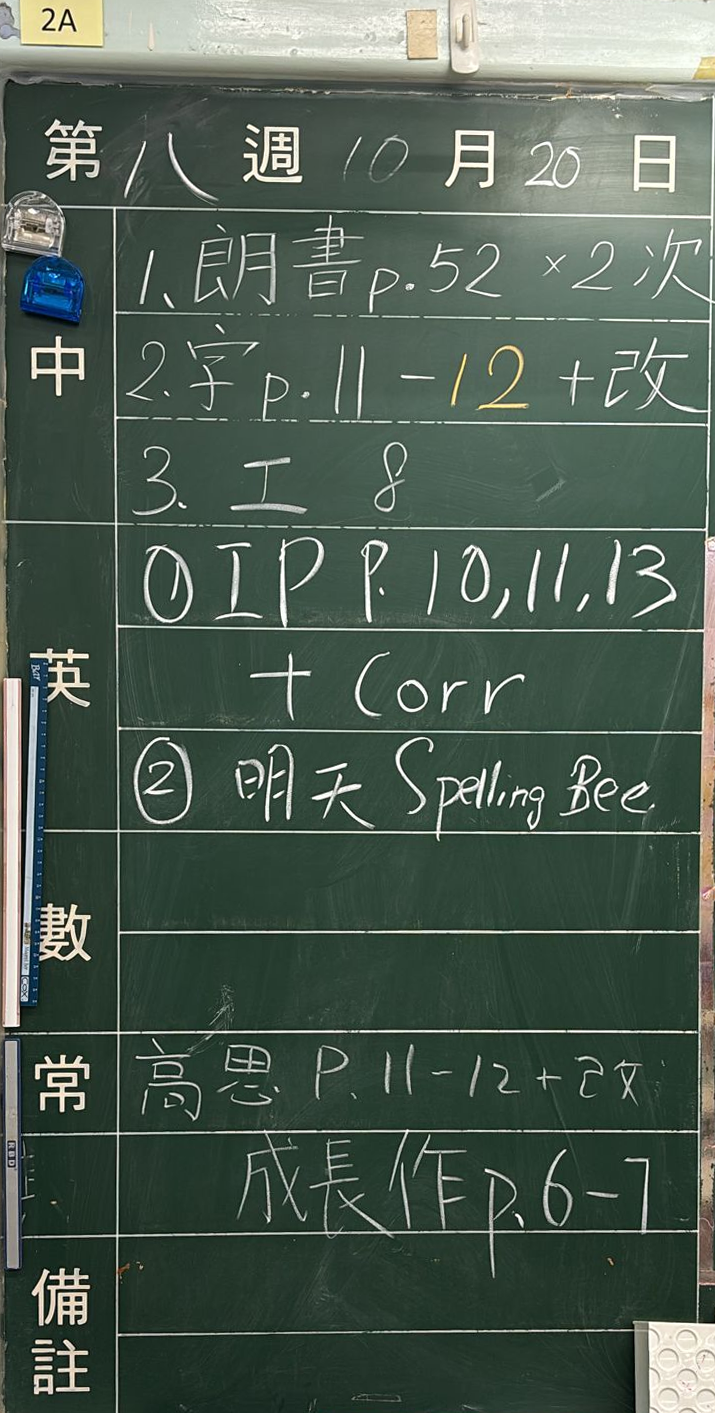 2A
第八週 10月20日
中
1. 朗書 p.52 ×2次
2. 字 p.11-12 +改
3. 工 8
英
① IP P.10,11,13
+ Corr
② 明天 Spelling Bee
數
常
高思 P.11-12+改
成長作 p.6-7
備註